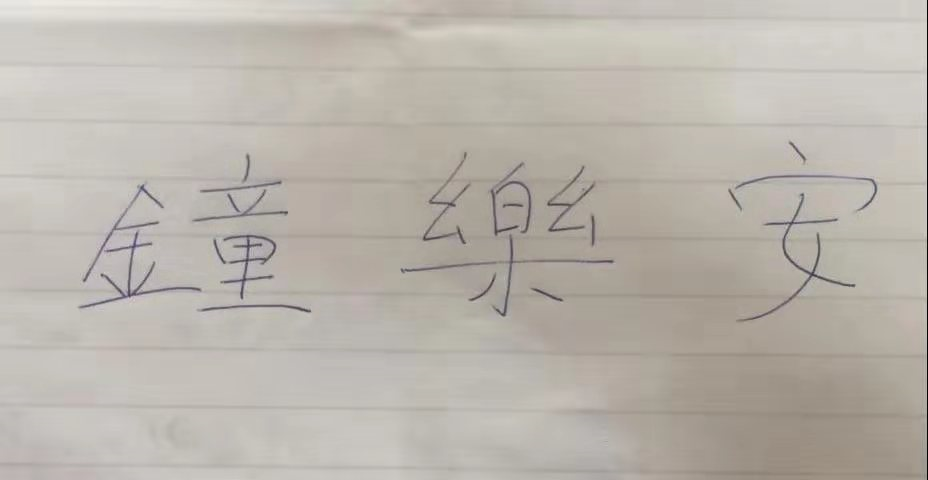 鐘 樂 安